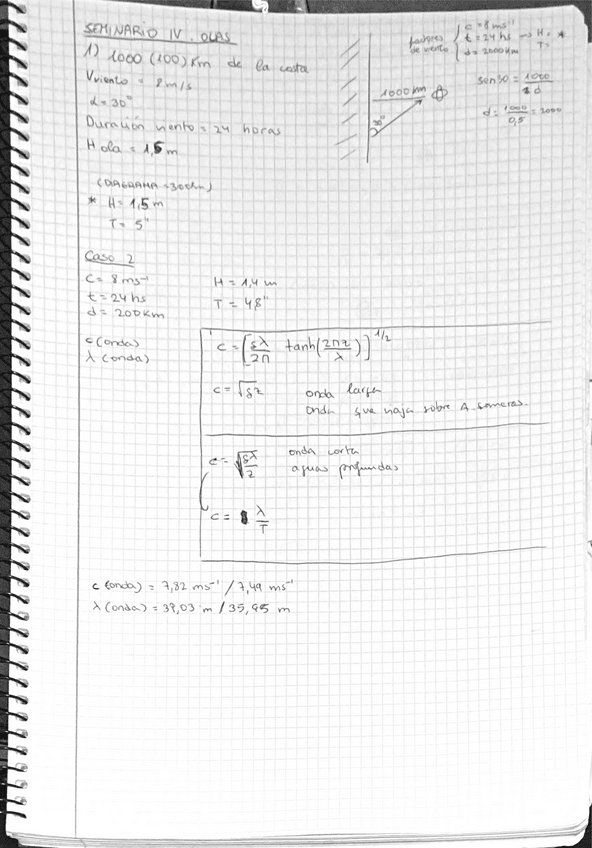 SEMINARIO IV. OLAS
1) 1000 (100) Km de la costa
Vviento = 8 m/s
α = 30°
Duración viento = 24 horas
H ola = 1,5 m
factores de viento
c = 8 ms⁻¹
t = 24 hs → H = *
d = 2000 km T =
1000 km
30°
sen 30 = 1000/d
d = 1000/0,5 = 2000
(DIAGRAMA = 300km)
* H = 1,5 m
T = 5"
Caso 2
C = 8 ms⁻¹ H = 1,4 m
t = 24 hs T = 4,8"
d = 200 km
c (onda)
λ (onda)
c = [gλ/2π tanh(2πz/λ)]^1/2
c = √gz onda larga
onda que viaja sobre A. someras.
c = √gλ/2 onda corta
aguas profundas
c = λ/T
c (onda) = 7,82 ms⁻¹ / 7,49 ms⁻¹
λ (onda) = 39,03 m / 35,95 m